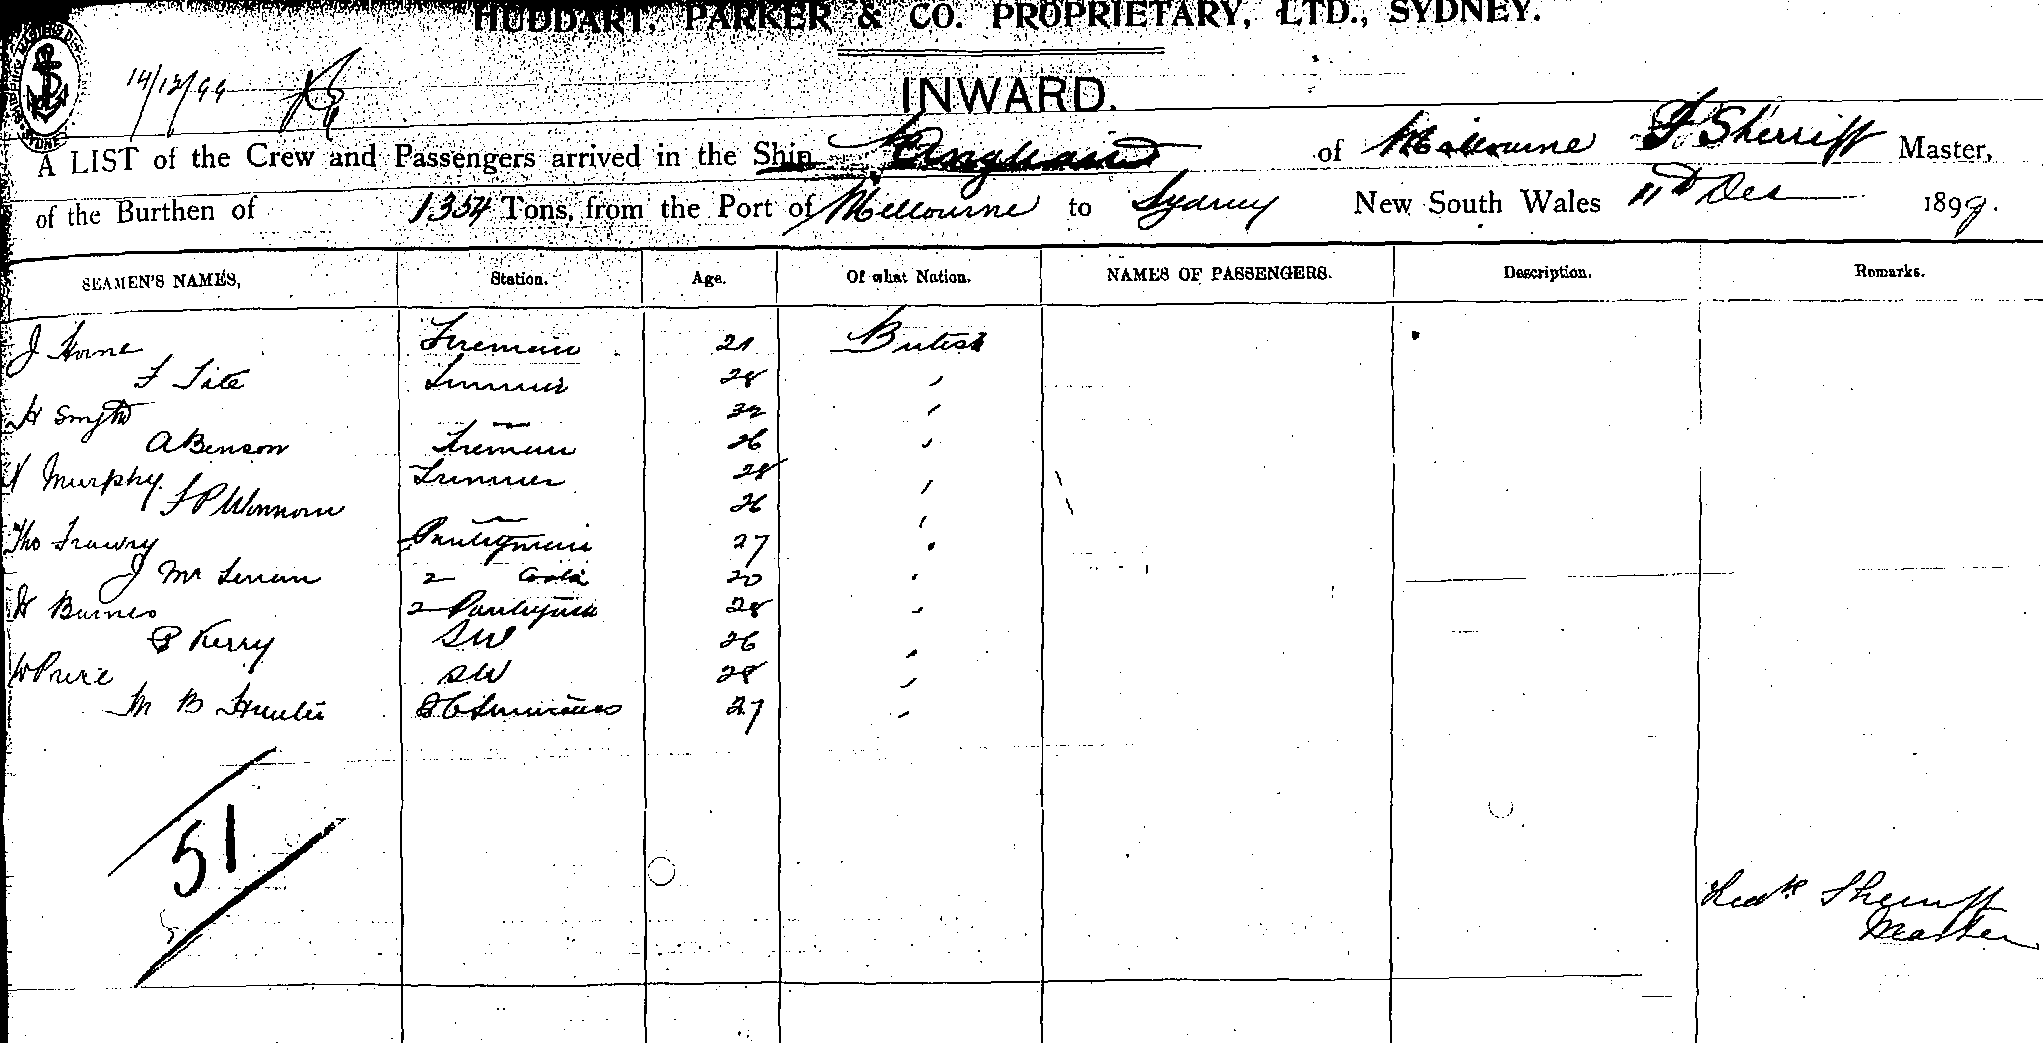 HUDDART, PARKER & CO. PROPRIETARY, LTD., SYDNEY.
14/12/99
INWARD.
A LIST of the Crew and Passengers arrived in the Ship of Melbourne F Sherriff Master,
of the Burthen of 1354 Tons, from the Port of Melbourne to Sydney New South Wales 11th Dec 1899.
SEAMEN'S NAMES, Station. Age. Of what Nation. NAMES OF PASSENGERS. Description. Remarks.
J Horne Fireman 21 British
F Tite Trimmer 28 "
H Smyth 32 "
A Benson Fireman 26 "
Murphy Trimmer 28 "
F P 26 "
Tho Pantryman 27 "
J Mc 2 Cook 20 "
H Barnes 2 28 "
P Kerry SW 26 "
W Price SW 28 "
M B Hunter 27 "
51
Fredk Sherriff
Master